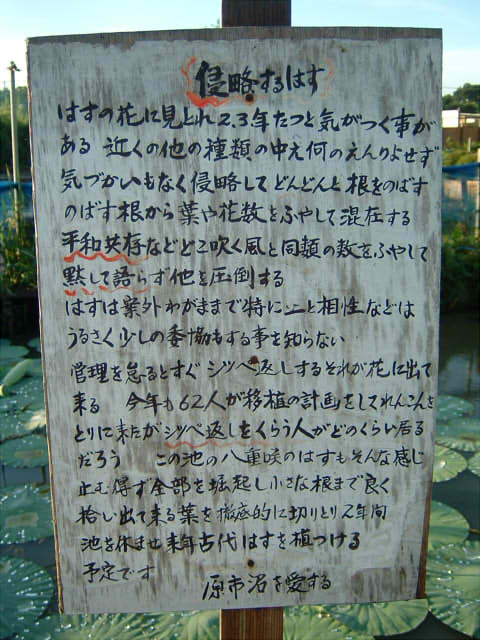 侵略するはす
はすの花に見とれ2.3年たつと気がつく事が
ある 近くの他の種類の中え何のえんりよせず
気づかいもなく侵略してどんどんと根をのばす
のばす根から葉や花数をふやして混在する
平和共存などどこ吹く風と同類の数をふやして
黙して語らず他を圧倒する
はすは案外わがままで特に土と相性などは
うるさく少しの妥協もする事を知らない
管理を怠るとすぐシツペ返しするそれが花に出て
来る 今年も62人が移植の計画をしてれんこんを
とりに来たがシツペ返しをくらう人がどのくらい居る
だろう この池の八重咲のはすもそんな感じ
止む得ず全部を堀起し小さな根まで良く
拾い出て来る葉を徹底的に切りとり2年間
池を休ませ来年古代はすを植つける
予定です 原市沼を愛する